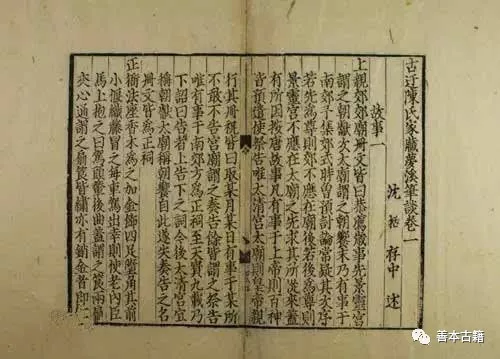 古迂陳氏家藏夢溪筆談卷一
沈括存中述
故事一
上親郊郊廟册文皆曰恭薦歲事先景靈宮
謂之朝獻次太廟謂之朝饗末乃有事于
南郊予集郊式時曽預討論常疑其次序
若先為尊則郊不應在廟後若後為尊則
景靈宮不應在太廟之先求其所從來蓋
有所因按唐故事凡有事于上帝則百神
皆預遣使祭告唯太清宮太廟則皇帝親
行其册祝皆曰取某月某日有事于某所
不敢不告宮廟謂之奏告餘皆謂之祭告
唯有事于南郊方為正祠至天寶九載乃
下詔曰告者上告下之詞今後太清宮宜
稱朝獻太廟稱朝饗自此遂失奏告之名
册文皆為正祠
正衙法座香木為之加金飾四足墮角其前
小偃織藤冒之每車駕出幸則使老內臣
馬上抱之曰駕頭輦後曲蓋謂之筤兩扇
夾心通謂之扇筤皆繡亦有銷金者即
善本古籍